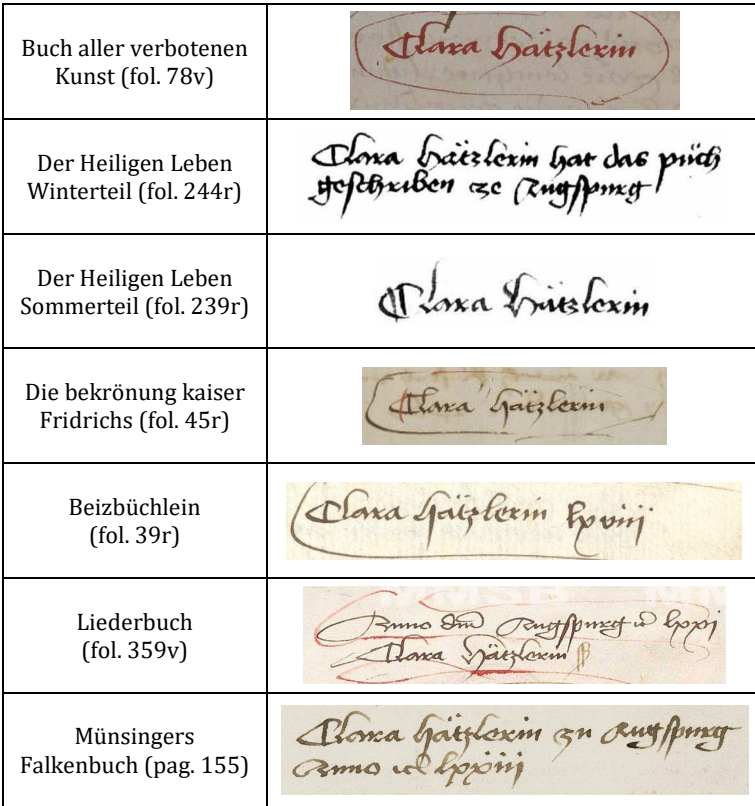 Buch aller verbotenen
Kunst (fol. 78v)
Clara Hätzlerin
Der Heiligen Leben
Winterteil (fol. 244r)
Clara Hätzlerin hat das püch
geschriben ze Augspurg
Der Heiligen Leben
Sommerteil (fol. 239r)
Clara Hätzlerin
Die bekrönung kaiser
Fridrichs (fol. 45r)
Clara Hätzlerin
Beizbüchlein
(fol. 39r)
Clara Hätzlerin lxviii
Liederbuch
(fol. 359v)
Anno dm̄ Augspurg lxxi
Clara Hätzlerin
Münsingers
Falkenbuch (pag. 155)
Clara Hätzlerin zu Augspurg
Anno lxxiii